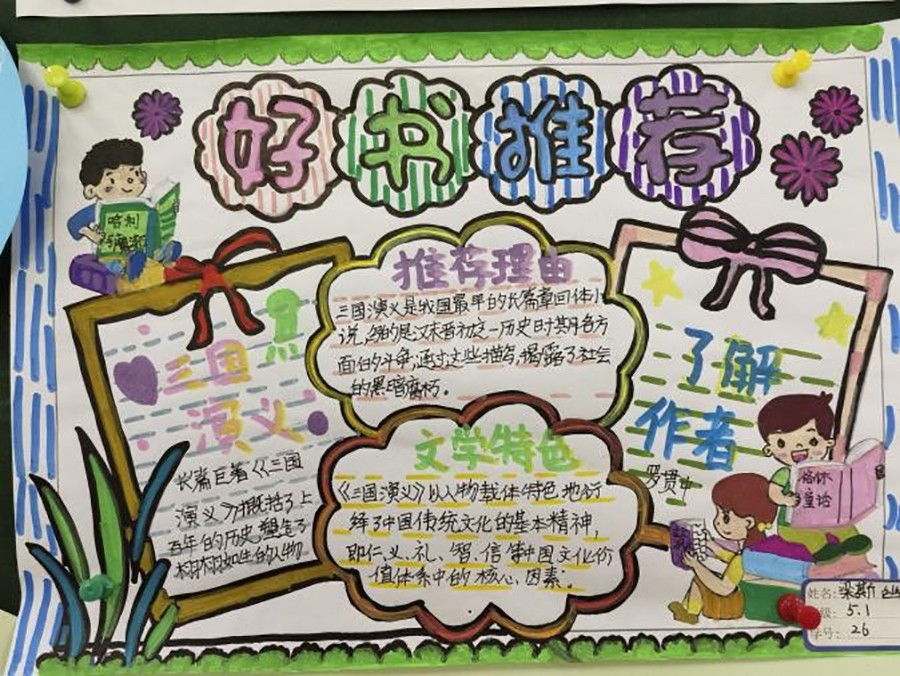 好书推荐
哈利
推荐理由
三国演义是我国最早的长篇章回体小
说,绘的是汉末晋初这一历史时期各方
面的斗争,通过这些描写,揭露了社会
的黑暗腐朽。
三国
演义
长篇巨著《三国
演义》概括了上
百年的历史,塑造了
栩栩如生的人物
文学特色
《三国演义》以人物载体特色地衍
绎了中国传统文化的基本精神,
即仁、义、礼、智、信等中国文化价
值体系中的核心因素;
了解
作者
罗贯中
格林
童话
姓名:梁斯
班级:5.1
学号:26